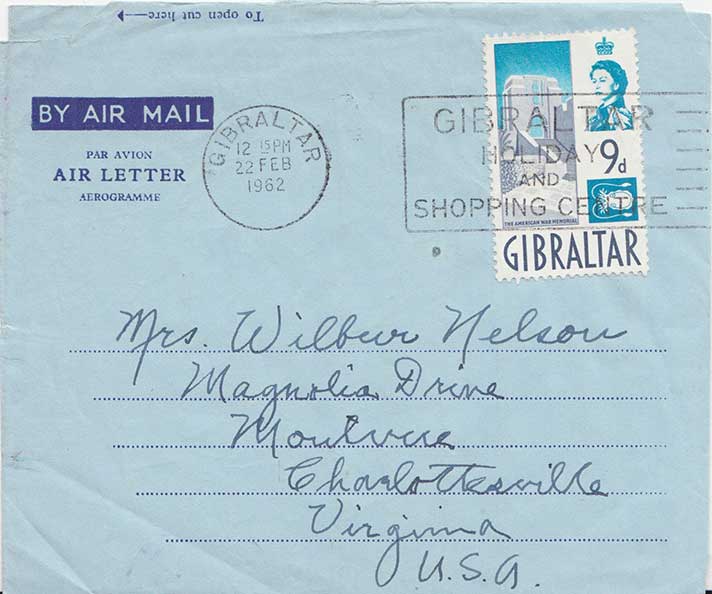 To open cut here
BY AIR MAIL
PAR AVION
AIR LETTER
AEROGRAMME
GIBRALTAR
12 15PM
22 FEB
1962
GIBRALTAR
HOLIDAY
AND
SHOPPING CENTRE
9d
THE AMERICAN WAR MEMORIAL
GIBRALTAR
Mrs. Wilbur Nelson
Magnolia Drive
Montvue
Charlottesville
Virginia
U.S.A.